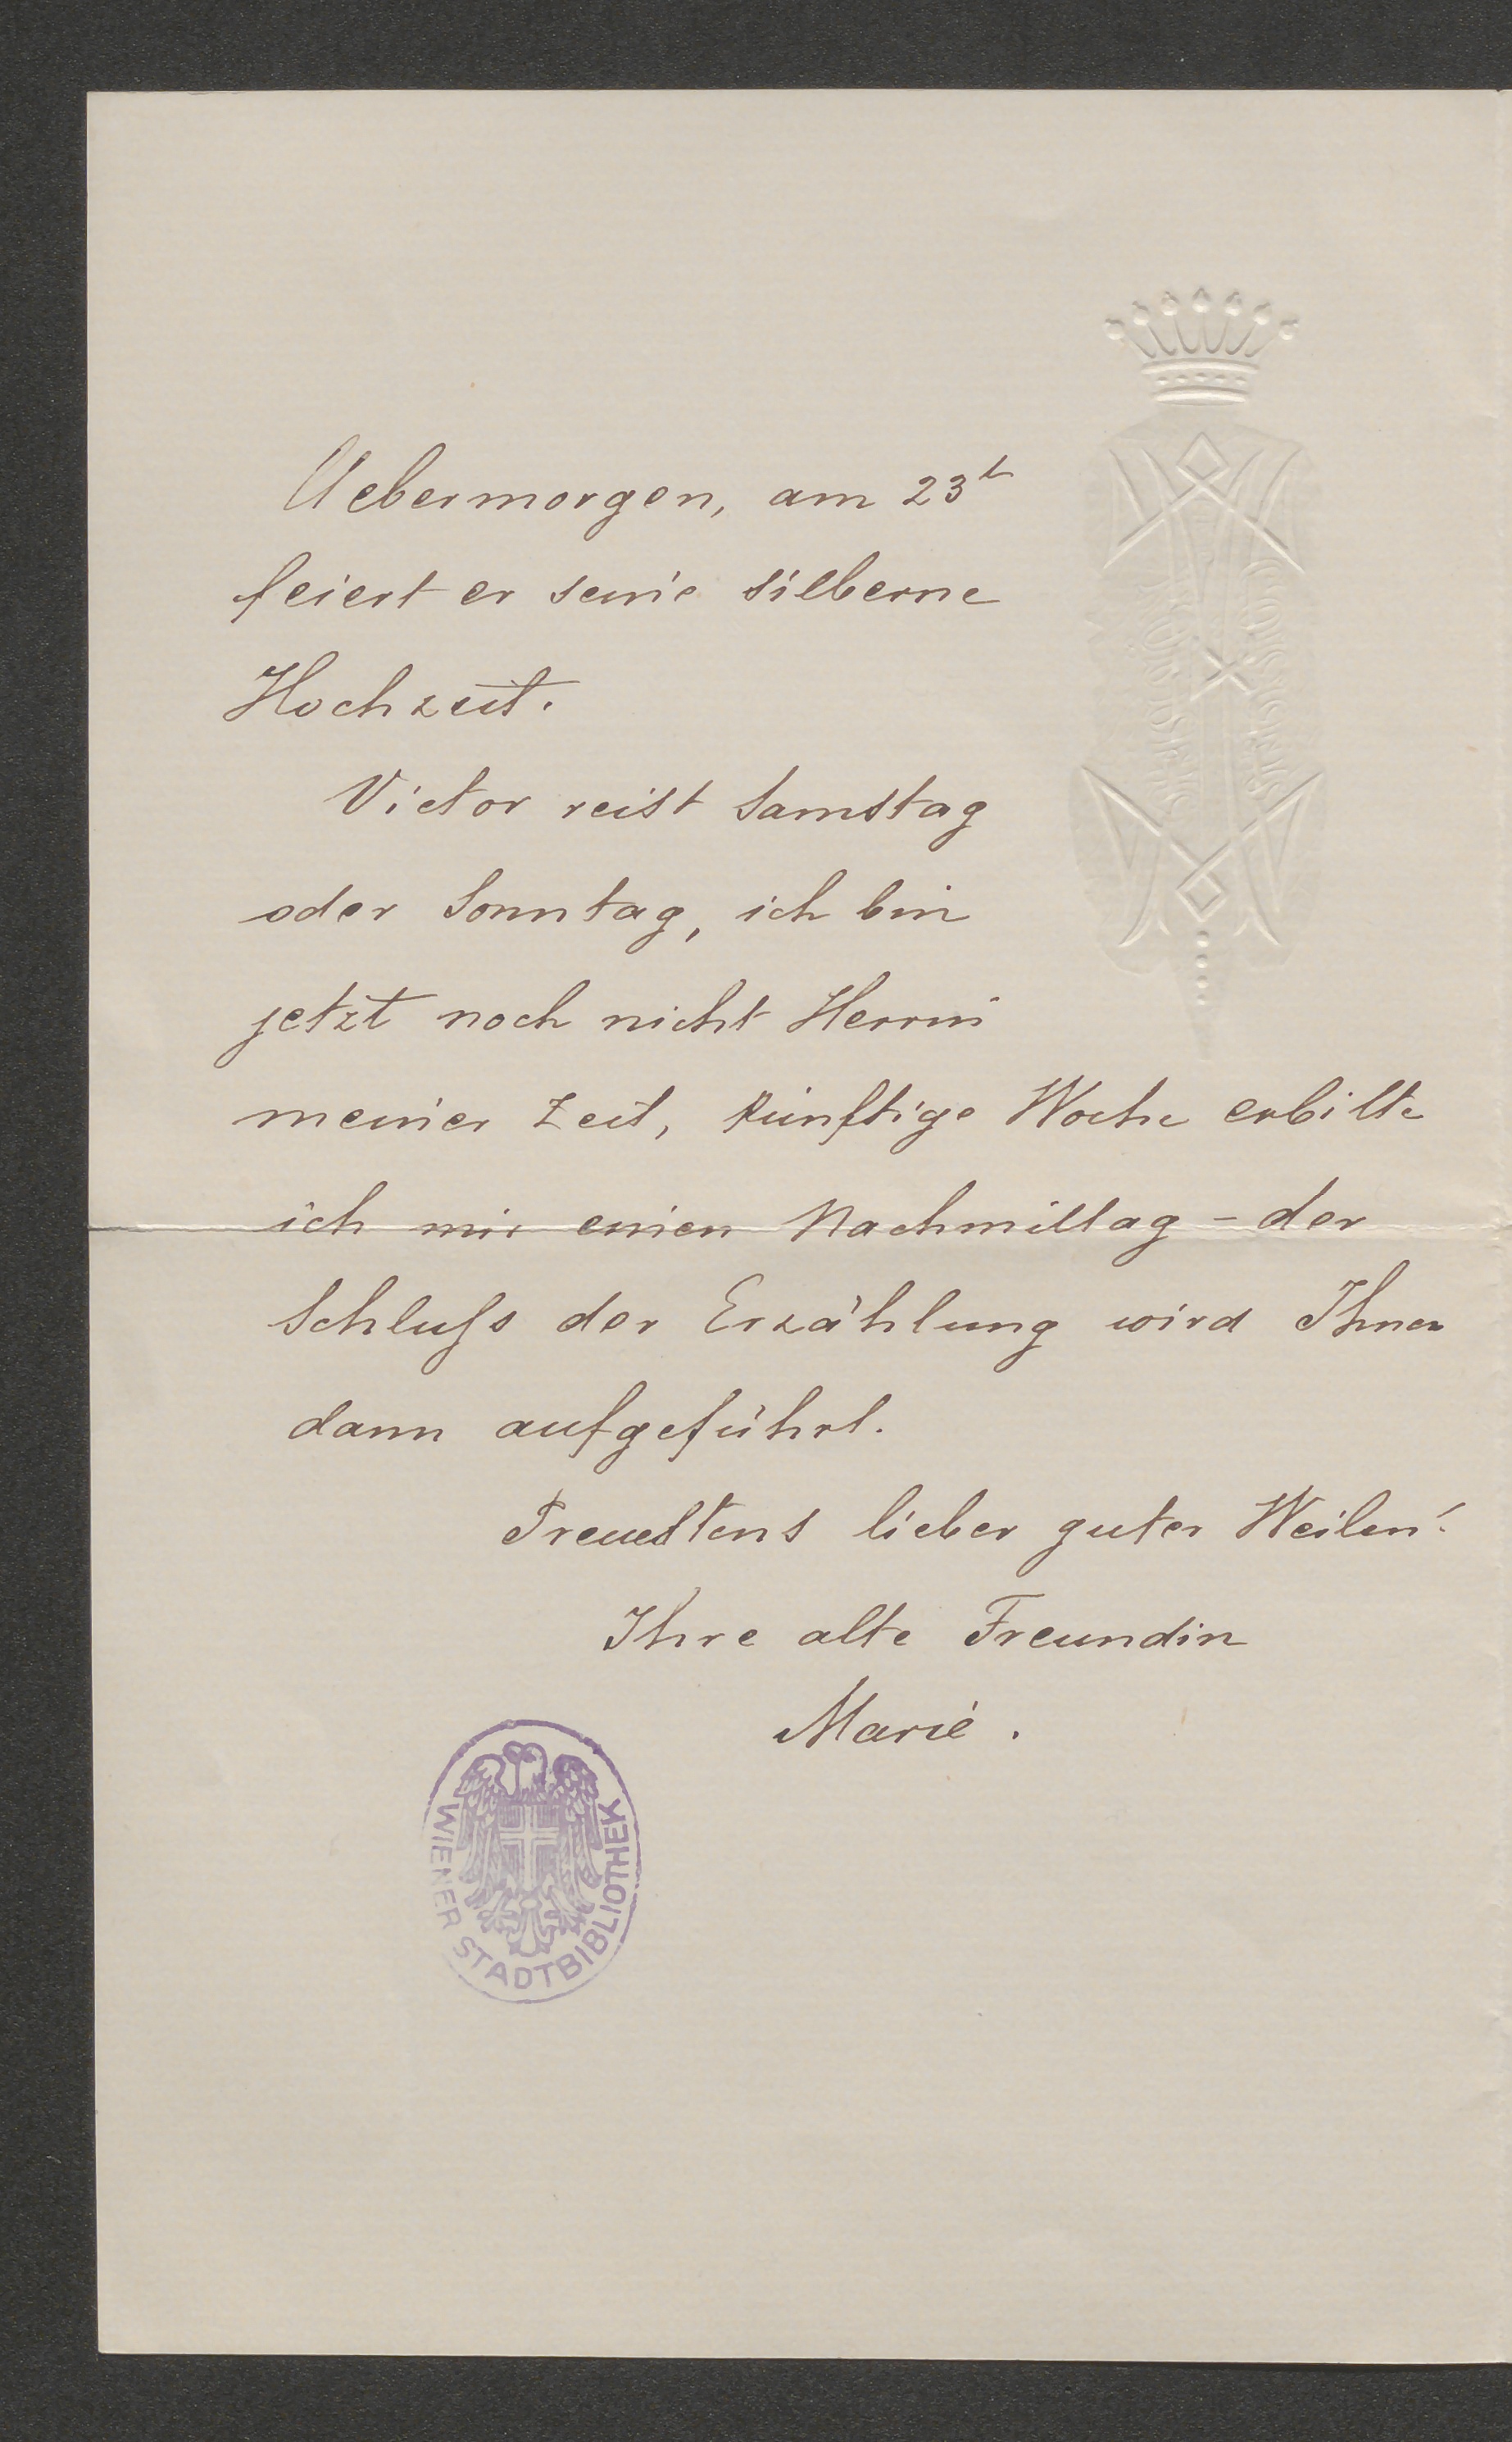 Uebermorgen, am 23t
feiert er seine silberne
Hochzeit.
Victor reist Samstag
oder Sonntag, ich bin
jetzt noch nicht Herrin
meiner Zeit, künftige Woche erbitte
ich mir einen Nachmittag – der
Schluſs der Erzählung wird Ihnen
dann aufgeführt.
Treuestens lieber guter Weilen!
Ihre alte Freundin
Marie.
WIENER STADTBIBLIOTHEK